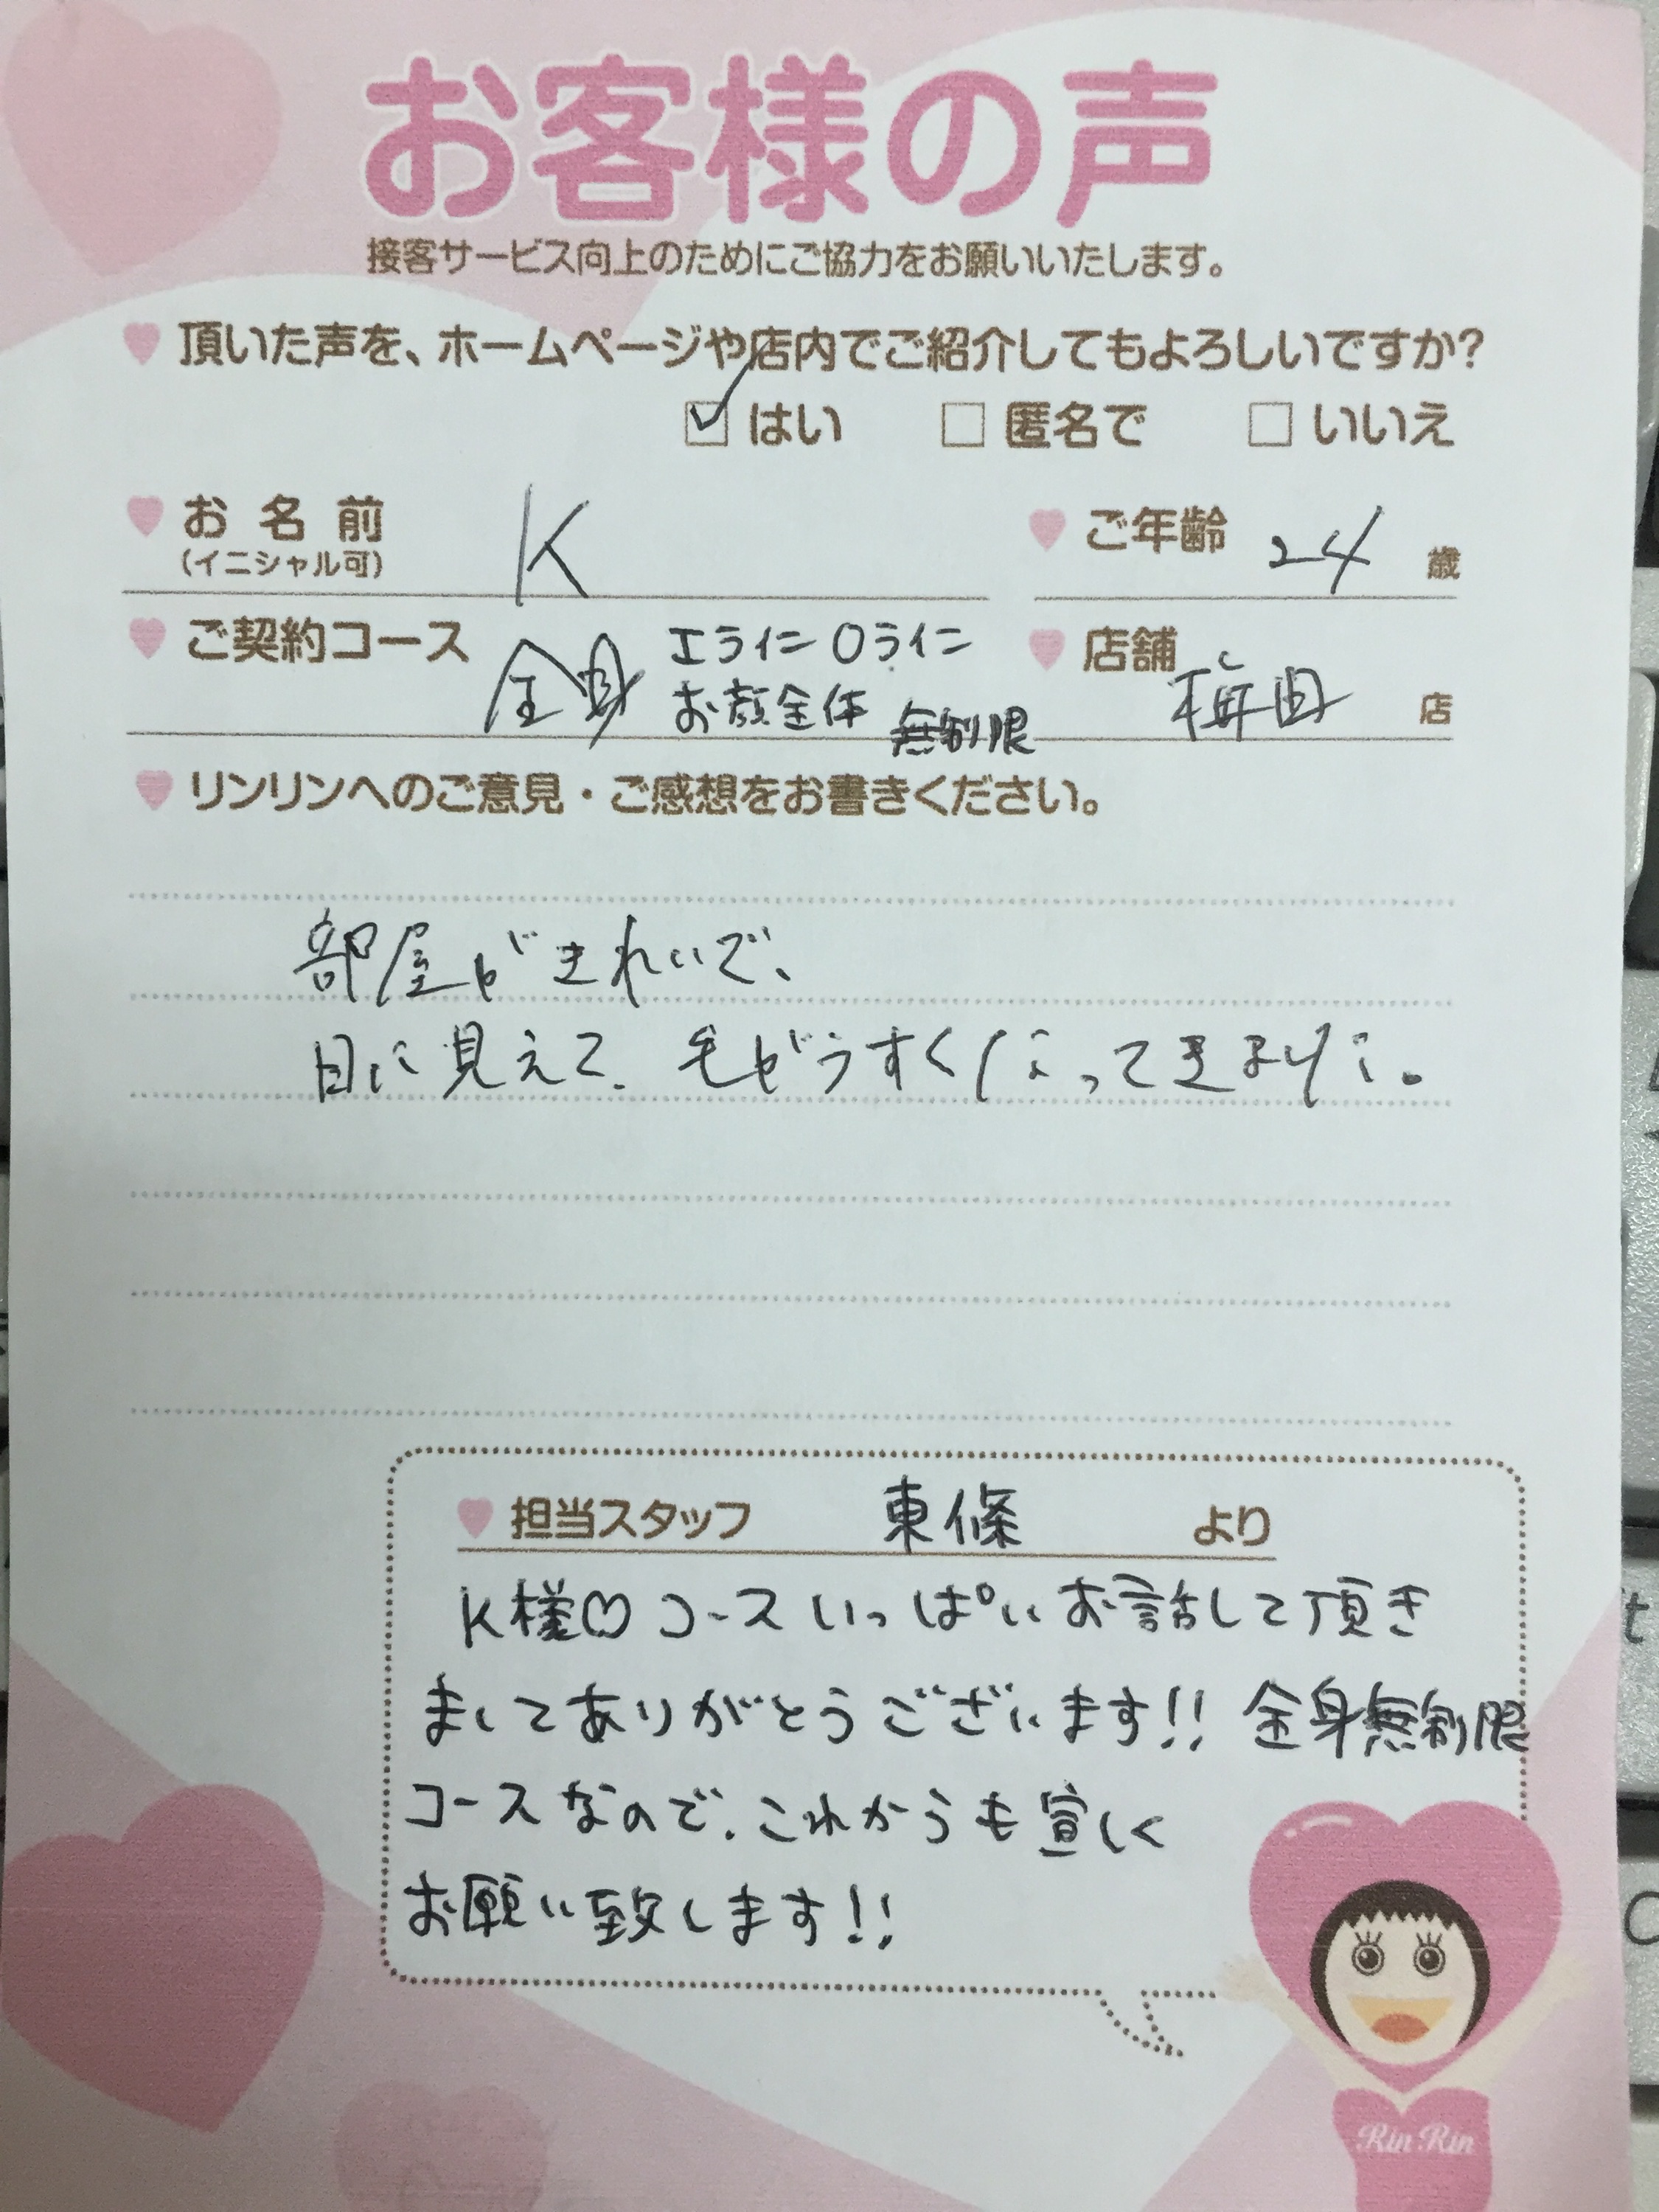 お客様の声
接客サービス向上のためにご協力をお願いいたします。
頂いた声を、ホームページや店内でご紹介してもよろしいですか?
はい 匿名で いいえ
お名前 K ご年齢 24 歳
(イニシャル可)
ご契約コース 全身 Iライン Oライン お顔全体 無制限
店舗 梅田 店
リンリンへのご意見・ご感想をお書きください。
部屋がきれいで、
目に見えて、毛がうすくなってきました。
担当スタッフ 東條 より
K様♡コースいっぱいお話して頂き
ましてありがとうございます!! 全身無制限
コースなので、これからも宜しく
お願い致します!!
Rin Rin